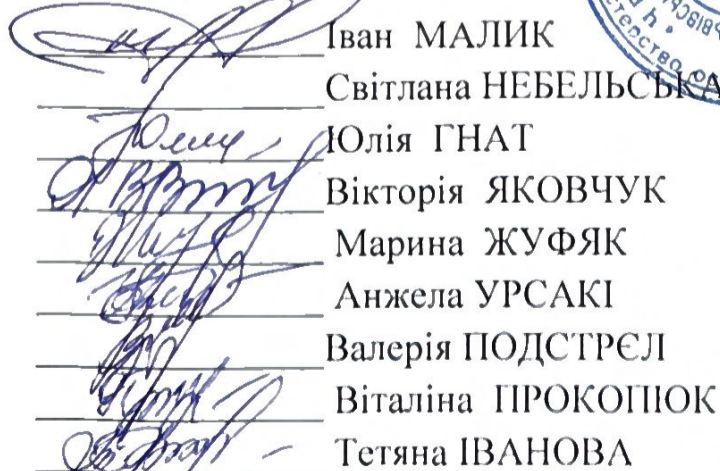 Іван МАЛИК
Світлана НЕБЕЛЬСЬКА
Юлія ГНАТ
Вікторія ЯКОВЧУК
Марина ЖУФЯК
Анжела УРСАКІ
Валерія ПОДСТРЄЛ
Віталіна ПРОКОПЮК
Тетяна ІВАНОВА